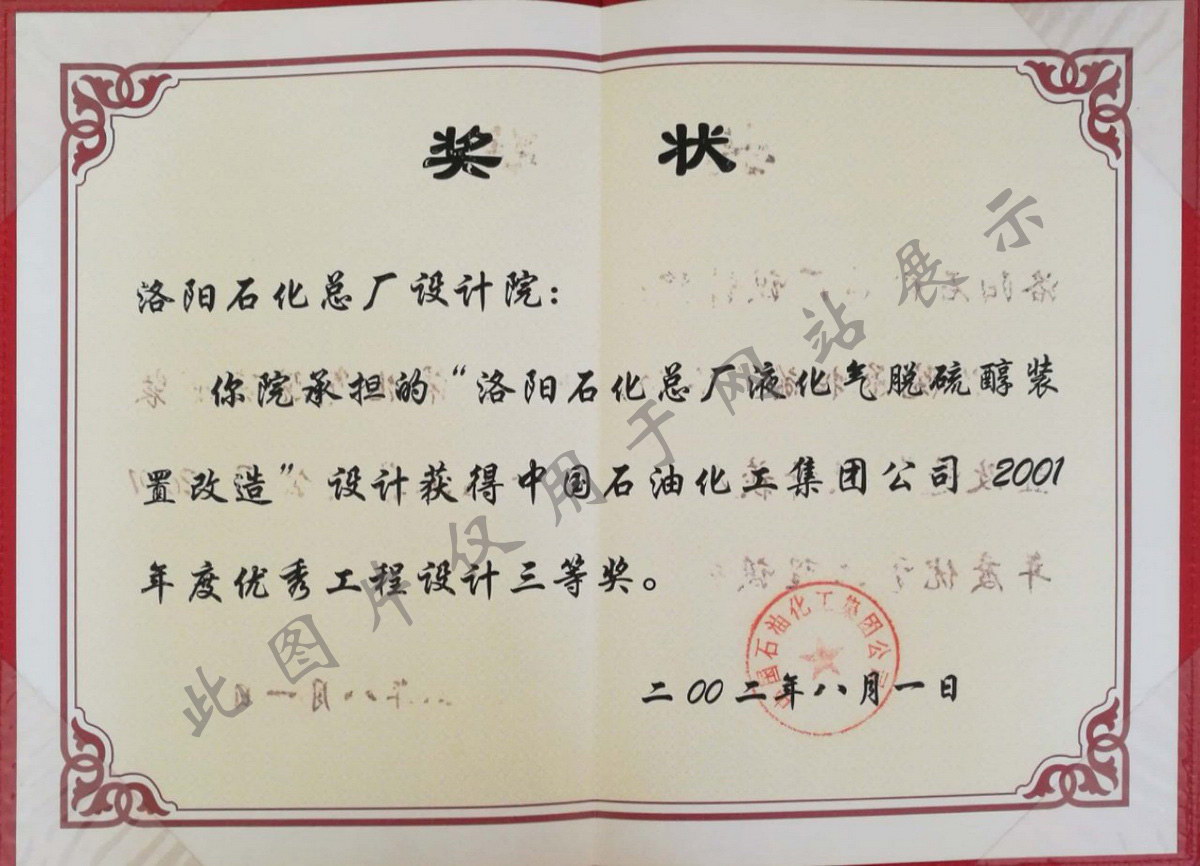 奖 状
洛阳石化总厂设计院：
你院承担的“洛阳石化总厂液化气脱硫醇装
置改造”设计获得中国石油化工集团公司2001
年度优秀工程设计三等奖。
中国石油化工集团公司
二00二年八月一日
此图片仅用于网站展示